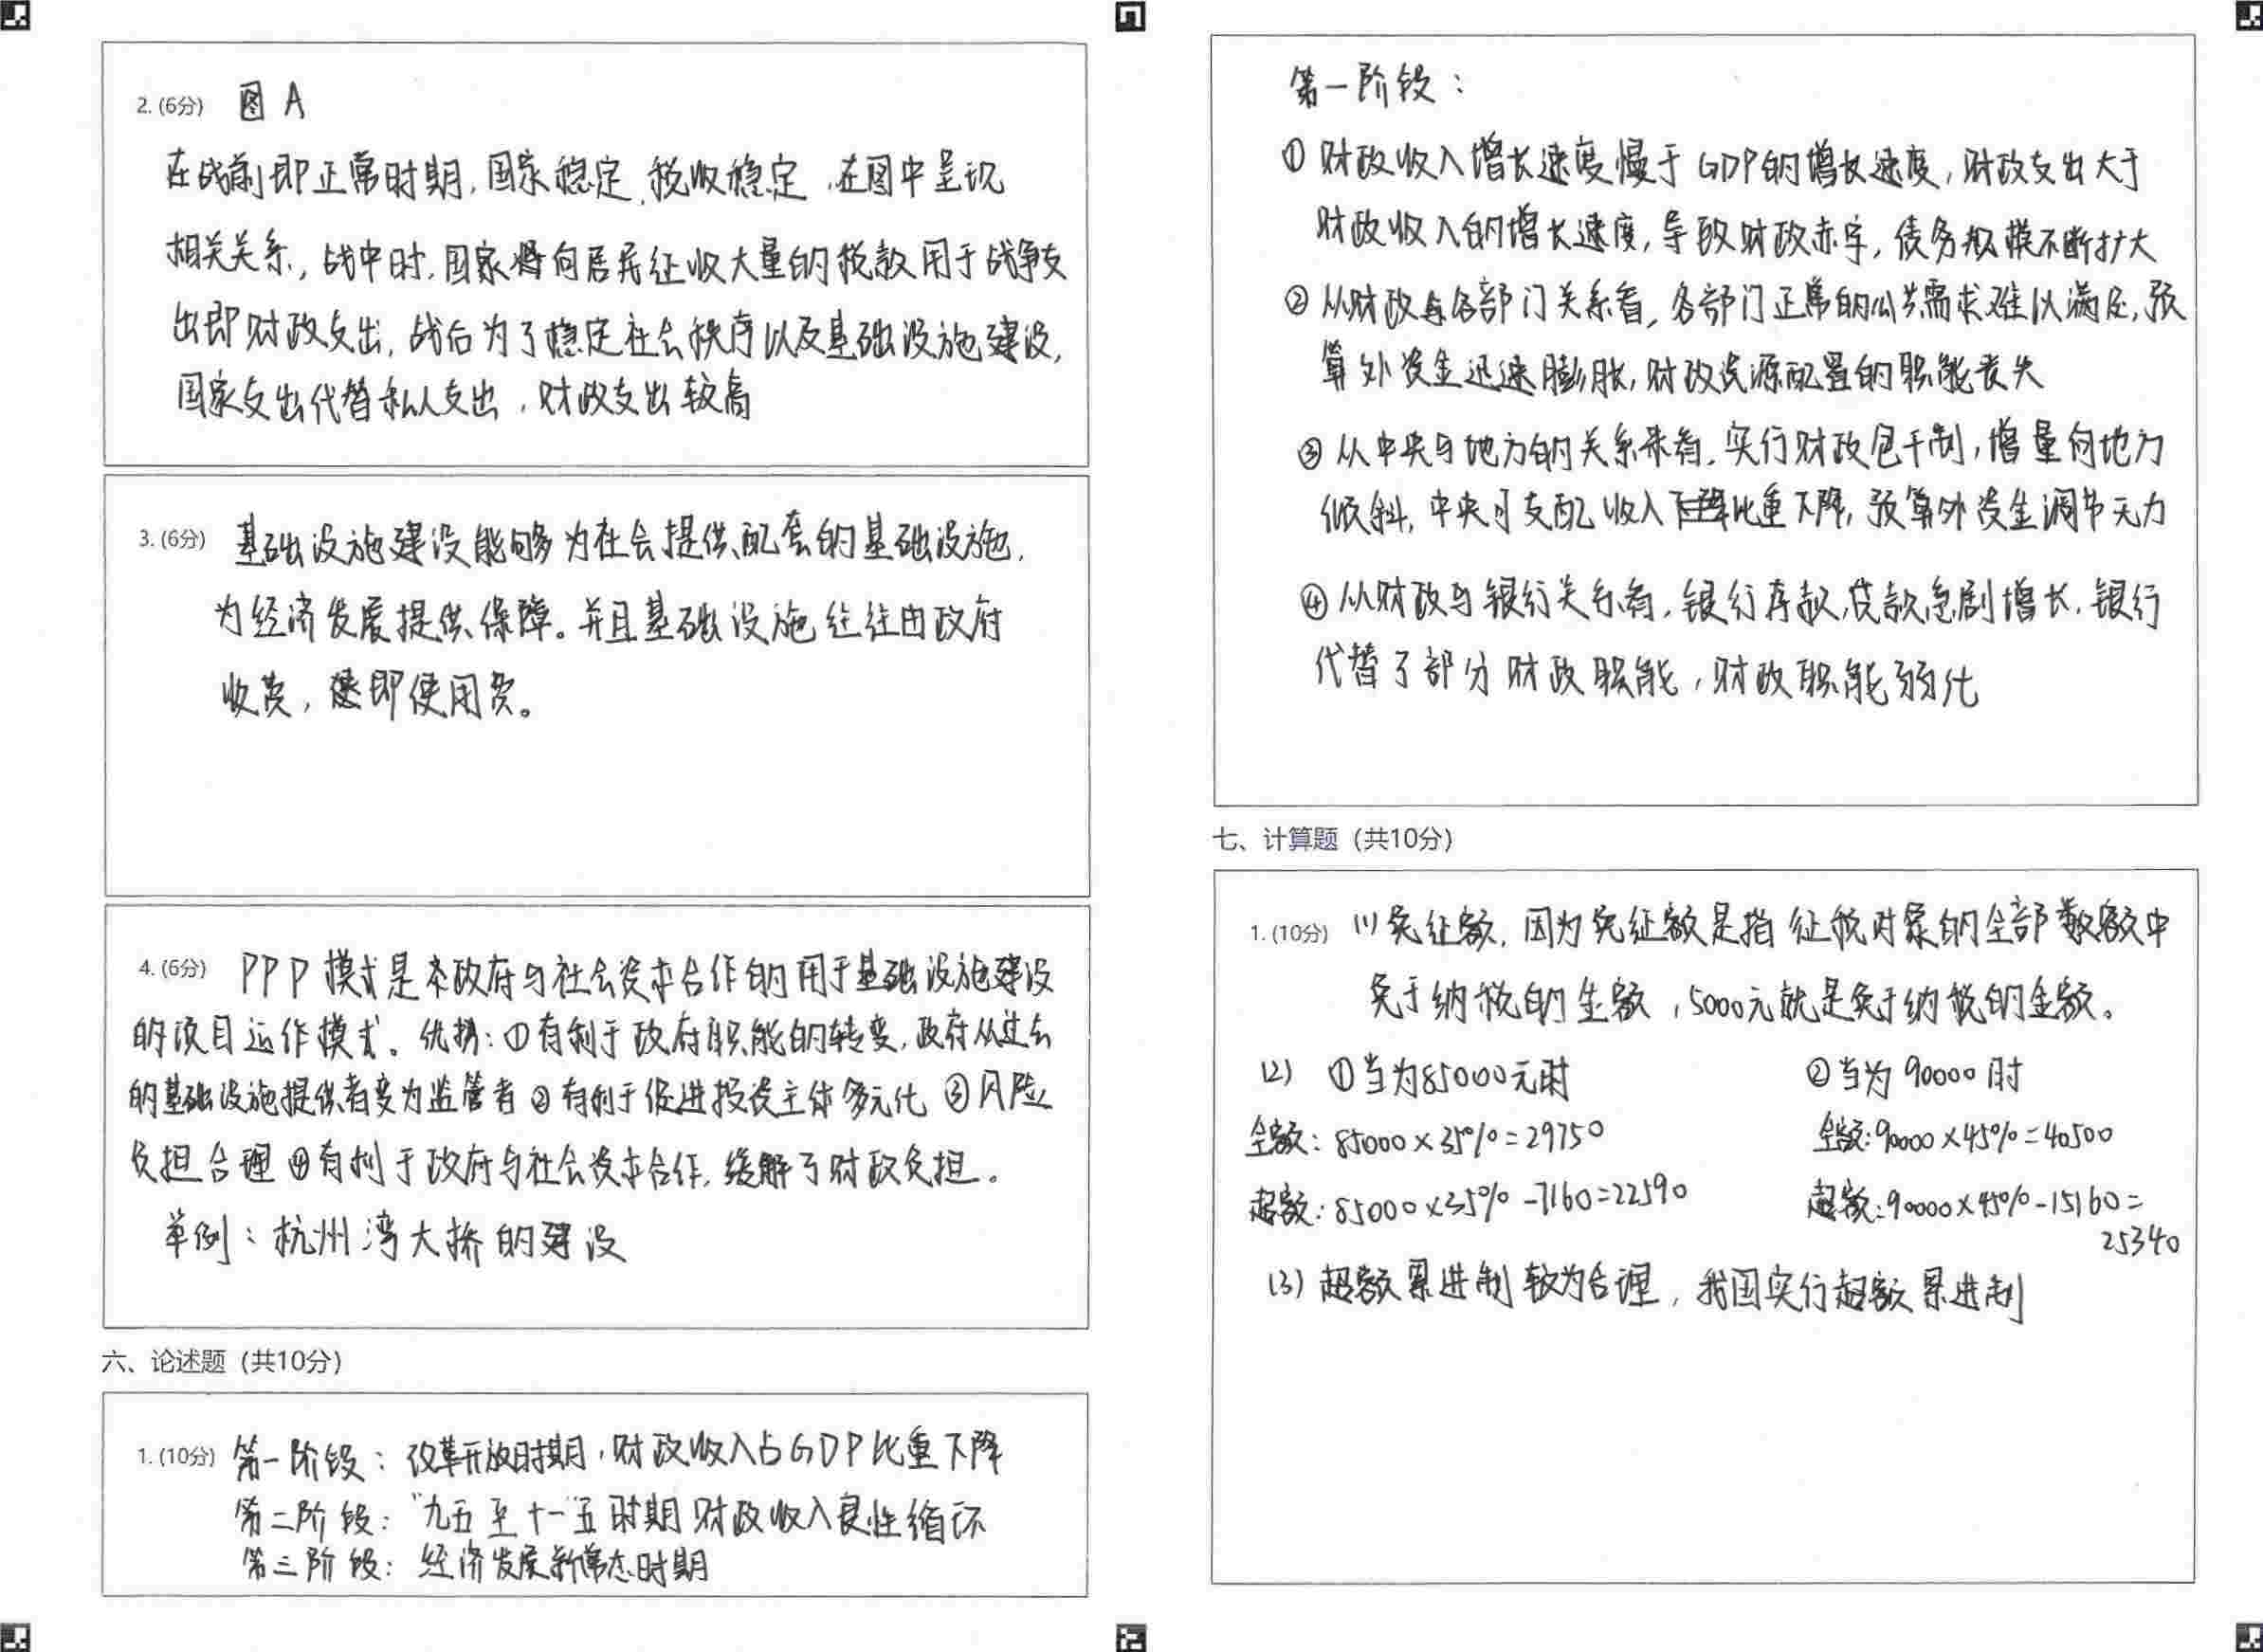 2. (6分) 图A
在战前即正常时期,国家稳定,税收稳定,在图中呈现
相关关系,战中时,国家将向居民征收大量的税款用于战争支
出即财政支出,战后为了稳定社会秩序以及基础设施建设,
国家支出代替私人支出,财政支出较高
3. (6分) 基础设施建设能够为社会提供配套的基础设施,
为经济发展提供保障。并且基础设施往往由政府
收费,即使用费。
4. (6分) PPP模式是政府与社会资本合作的用于基础设施建设
的项目运作模式。优势:①有利于政府职能的转变,政府从过去
的基础设施提供者变为监管者 ②有利于促进投资主体多元化 ③风险
负担合理 ④有利于政府与社会资本合作,缓解了财政负担。
举例:杭州湾大桥的建设
六、论述题 (共10分)
1. (10分) 第一阶段:改革开放时期,财政收入占GDP比重下降
第二阶段:"九五至十一"五时期财政收入良性循环
第三阶段:经济发展新常态时期
第一阶段:
①财政收入增长速度慢于GDP的增长速度,财政支出大于
财政收入的增长速度,导致财政赤字,债务规模不断扩大
②从财政与各部门关系看,各部门正常的公共需求难以满足,预
算外资金迅速膨胀,财政资源配置的职能丧失
③从中央与地方的关系来看,实行财政包干制,增量向地方
倾斜,中央可支配收入比重下降,预算外资金调节无力
④从财政与银行关系看,银行存款,贷款急剧增长,银行
代替了部分财政职能,财政职能弱化
七、计算题 (共10分)
1. (10分) (1)免征额,因为免征额是指征税对象的全部数额中
免于纳税的金额,5000元就是免于纳税的金额。
(2) ①当为85000元时 ②当为90000时
全额:85000×35%=29750 全额:90000×45%=40500
超额:85000×35%-7160=22590 超额:90000×45%-15160=
25340
(3)超额累进制较为合理,我国实行超额累进制